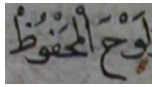 لَوْحَ الْمَحْفُوظْ